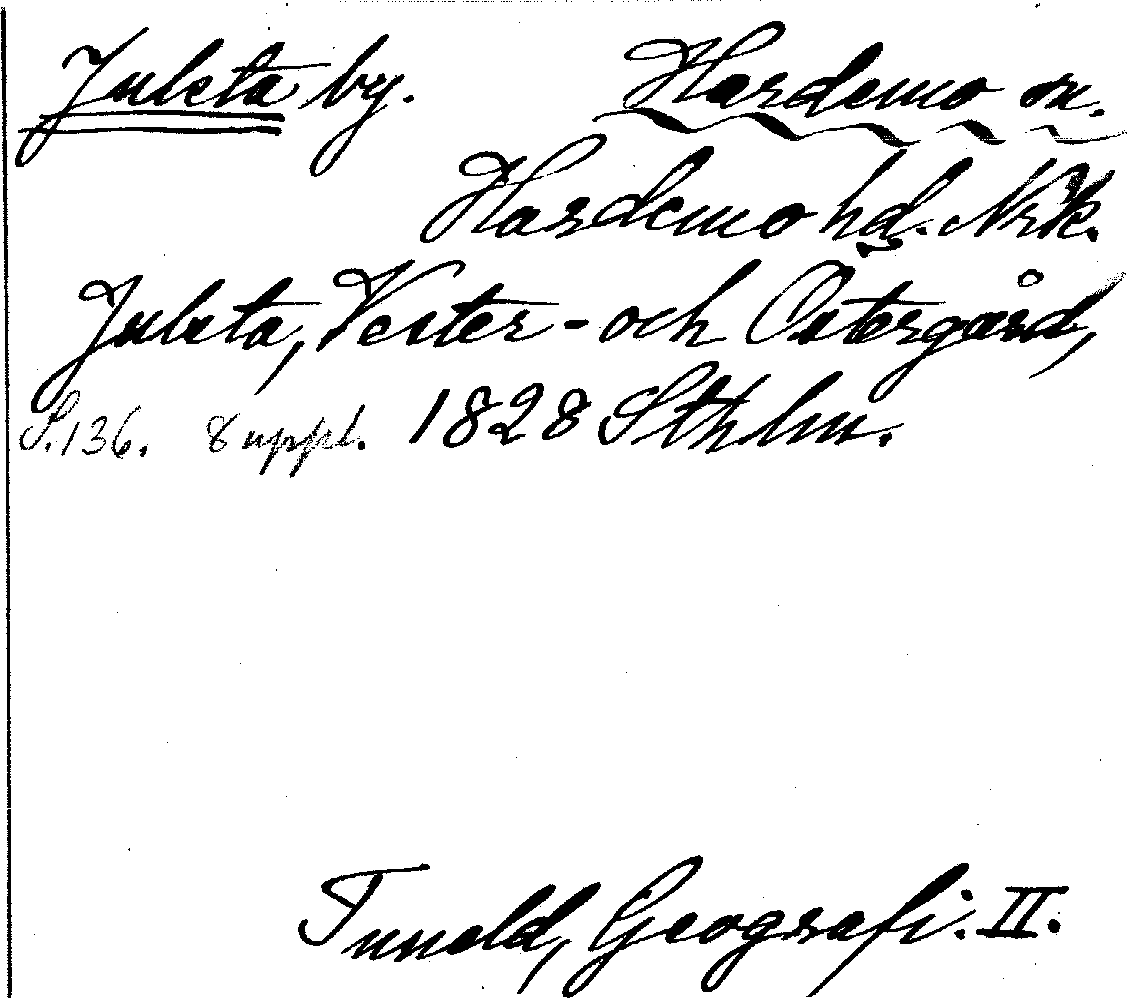 Juleta by. Hardemo sn.
Hardemo hd. Nrk.
Juleta, Vester- och Östergård,
S. 136. 8 uppl. 1828 Sthlm.
Tuneld, Geografi. II.